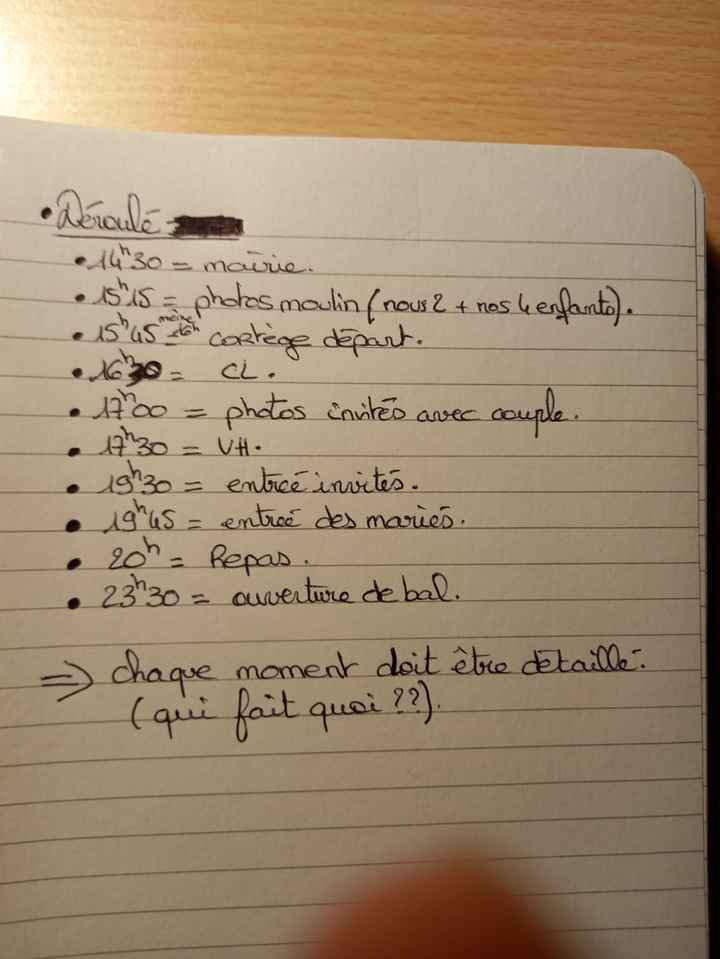 • Déroulé =
• 14h30 = mairie.
• 15h15 = photos moulin (nous 2 + nos 4 enfants).
• 15h45 même 16h cortège départ.
• 16h30 = CL.
• 17h00 = photos invités avec couple.
• 17h30 = VH.
• 19h30 = entreé invités.
• 19h45 = entreé des mariés.
• 20h = Repas.
• 23h30 = ouverture de bal.
=> chaque moment doit être détaillé.
(qui fait quoi ??).